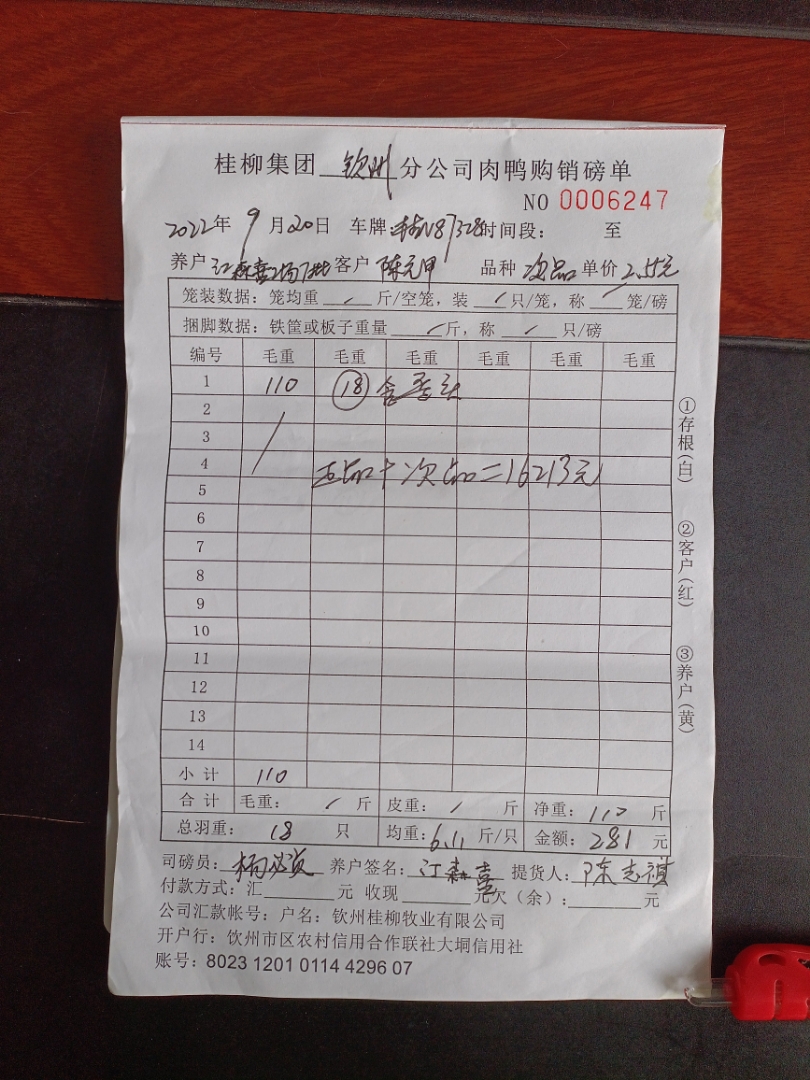 桂柳集团 钦州 分公司肉鸭购销磅单
NO 0006247
2022年 9月20日 车牌: 87328 时间段: 至
养户 客户 陈元甲 品种 次品 单价 2.55元
笼装数据: 笼均重 / 斤/空笼, 装 / 只/笼, 称 / 笼/磅
捆脚数据: 铁筐或板子重量 / 斤, 称 / 只/磅
编号 毛重 毛重 毛重 毛重 毛重 毛重
1 110 ⑱ 含
2
3
4 正品+次品=16213元
5
6
7
8
9
10
11
12
13
14
小计 110
合计 毛重: / 斤 皮重: / 斤 净重: 110 斤
总羽重: 18 只 均重: 6.11 斤/只 金额: 281 元
司磅员: 养户签名: 江森喜 提货人: 陈志祺
付款方式: 汇 元 收现 元欠(余): 元
公司汇款帐号: 户名: 钦州桂柳牧业有限公司
开户行: 钦州市区农村信用合作联社大垌信用社
账号: 8023 1201 0114 4296 07
①存根(白)
②客户(红)
③养户(黄)